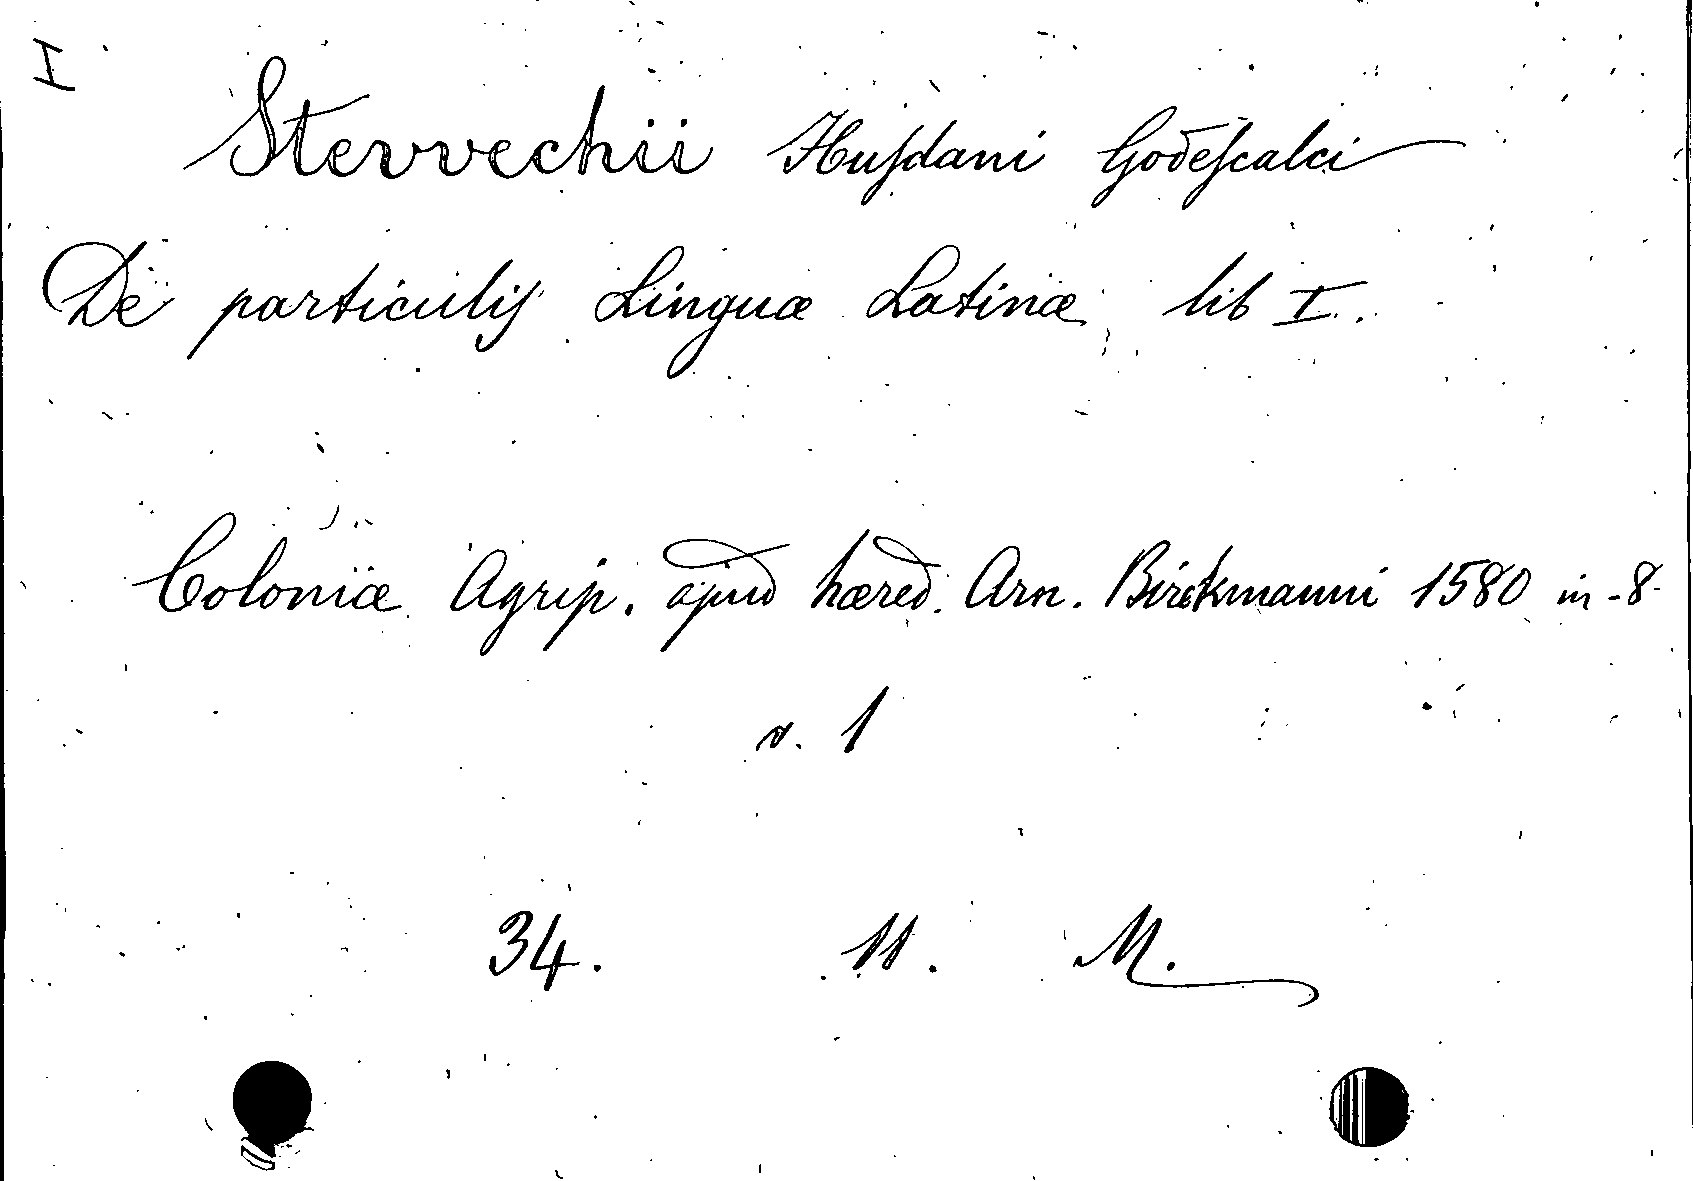 I
Stevvechii Husdani Godescalci
De particulis Linguæ Latinæ lib I.
Coloniæ Agrip. apud hæred. Arn. Birckmanni 1580 in-8
v. 1
34. 11. M.